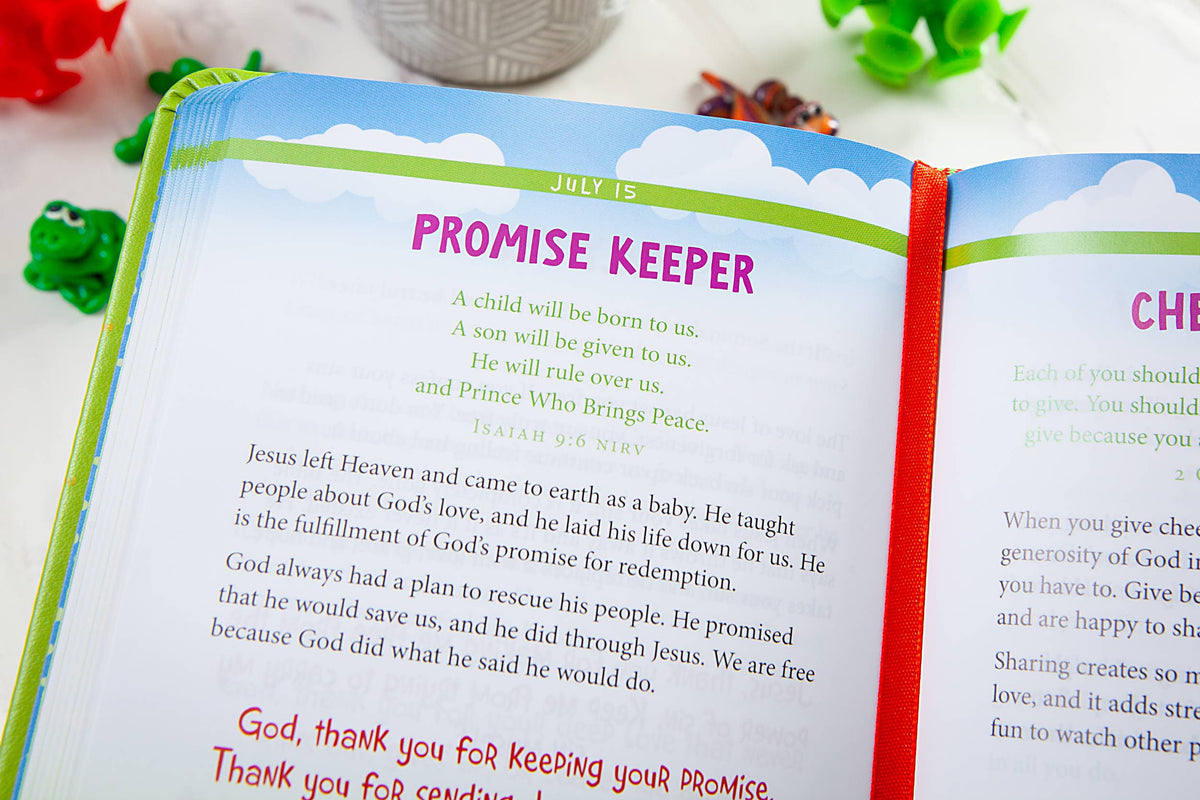 JULY 15
PROMISE KEEPER
A child will be born to us.
A son will be given to us.
He will rule over us.
and Prince Who Brings Peace.
Isaiah 9:6 NIRV
Jesus left Heaven and came to earth as a baby. He taught
people about God's love, and he laid his life down for us. He
is the fulfillment of God's promise for redemption.
God always had a plan to rescue his people. He promised
that he would save us, and he did through Jesus. We are free
because God did what he said he would do.
God, thank you for keeping your promise.
Thank you for sending
CHE
Each of you should
to give. You should
give because you
2
When you give chee
generosity of God in
you have to. Give be
and are happy to sha
Sharing creates so m
love, and it adds stre
fun to watch other p
in all you do.